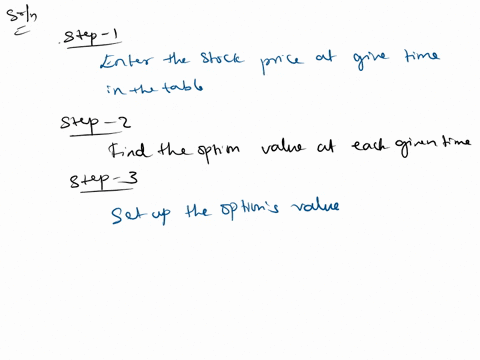 Soln
Step-1
Enter the stock price at give time
in the table
Step-2
Find the option value at each given time
Step-3
Set up the option's value